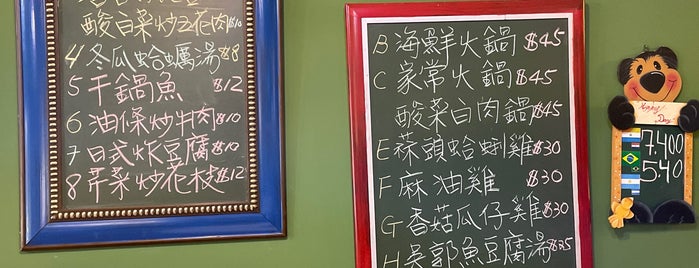 酸白菜炒五花肉$10
4 冬瓜蛤蠣湯$8
5 干鍋魚 $12
6 油條炒牛肉$10
7 日式炸豆腐$10
8 芹菜炒花枝$12
B 海鮮火鍋 $45
C 家常火鍋 $45
酸菜白肉鍋$45
E 蒜頭蛤蜊雞$30
F 麻油雞 $30
G 香菇瓜仔雞$30
H 吳郭魚豆腐湯$25
Happy Day
7.400
5.40